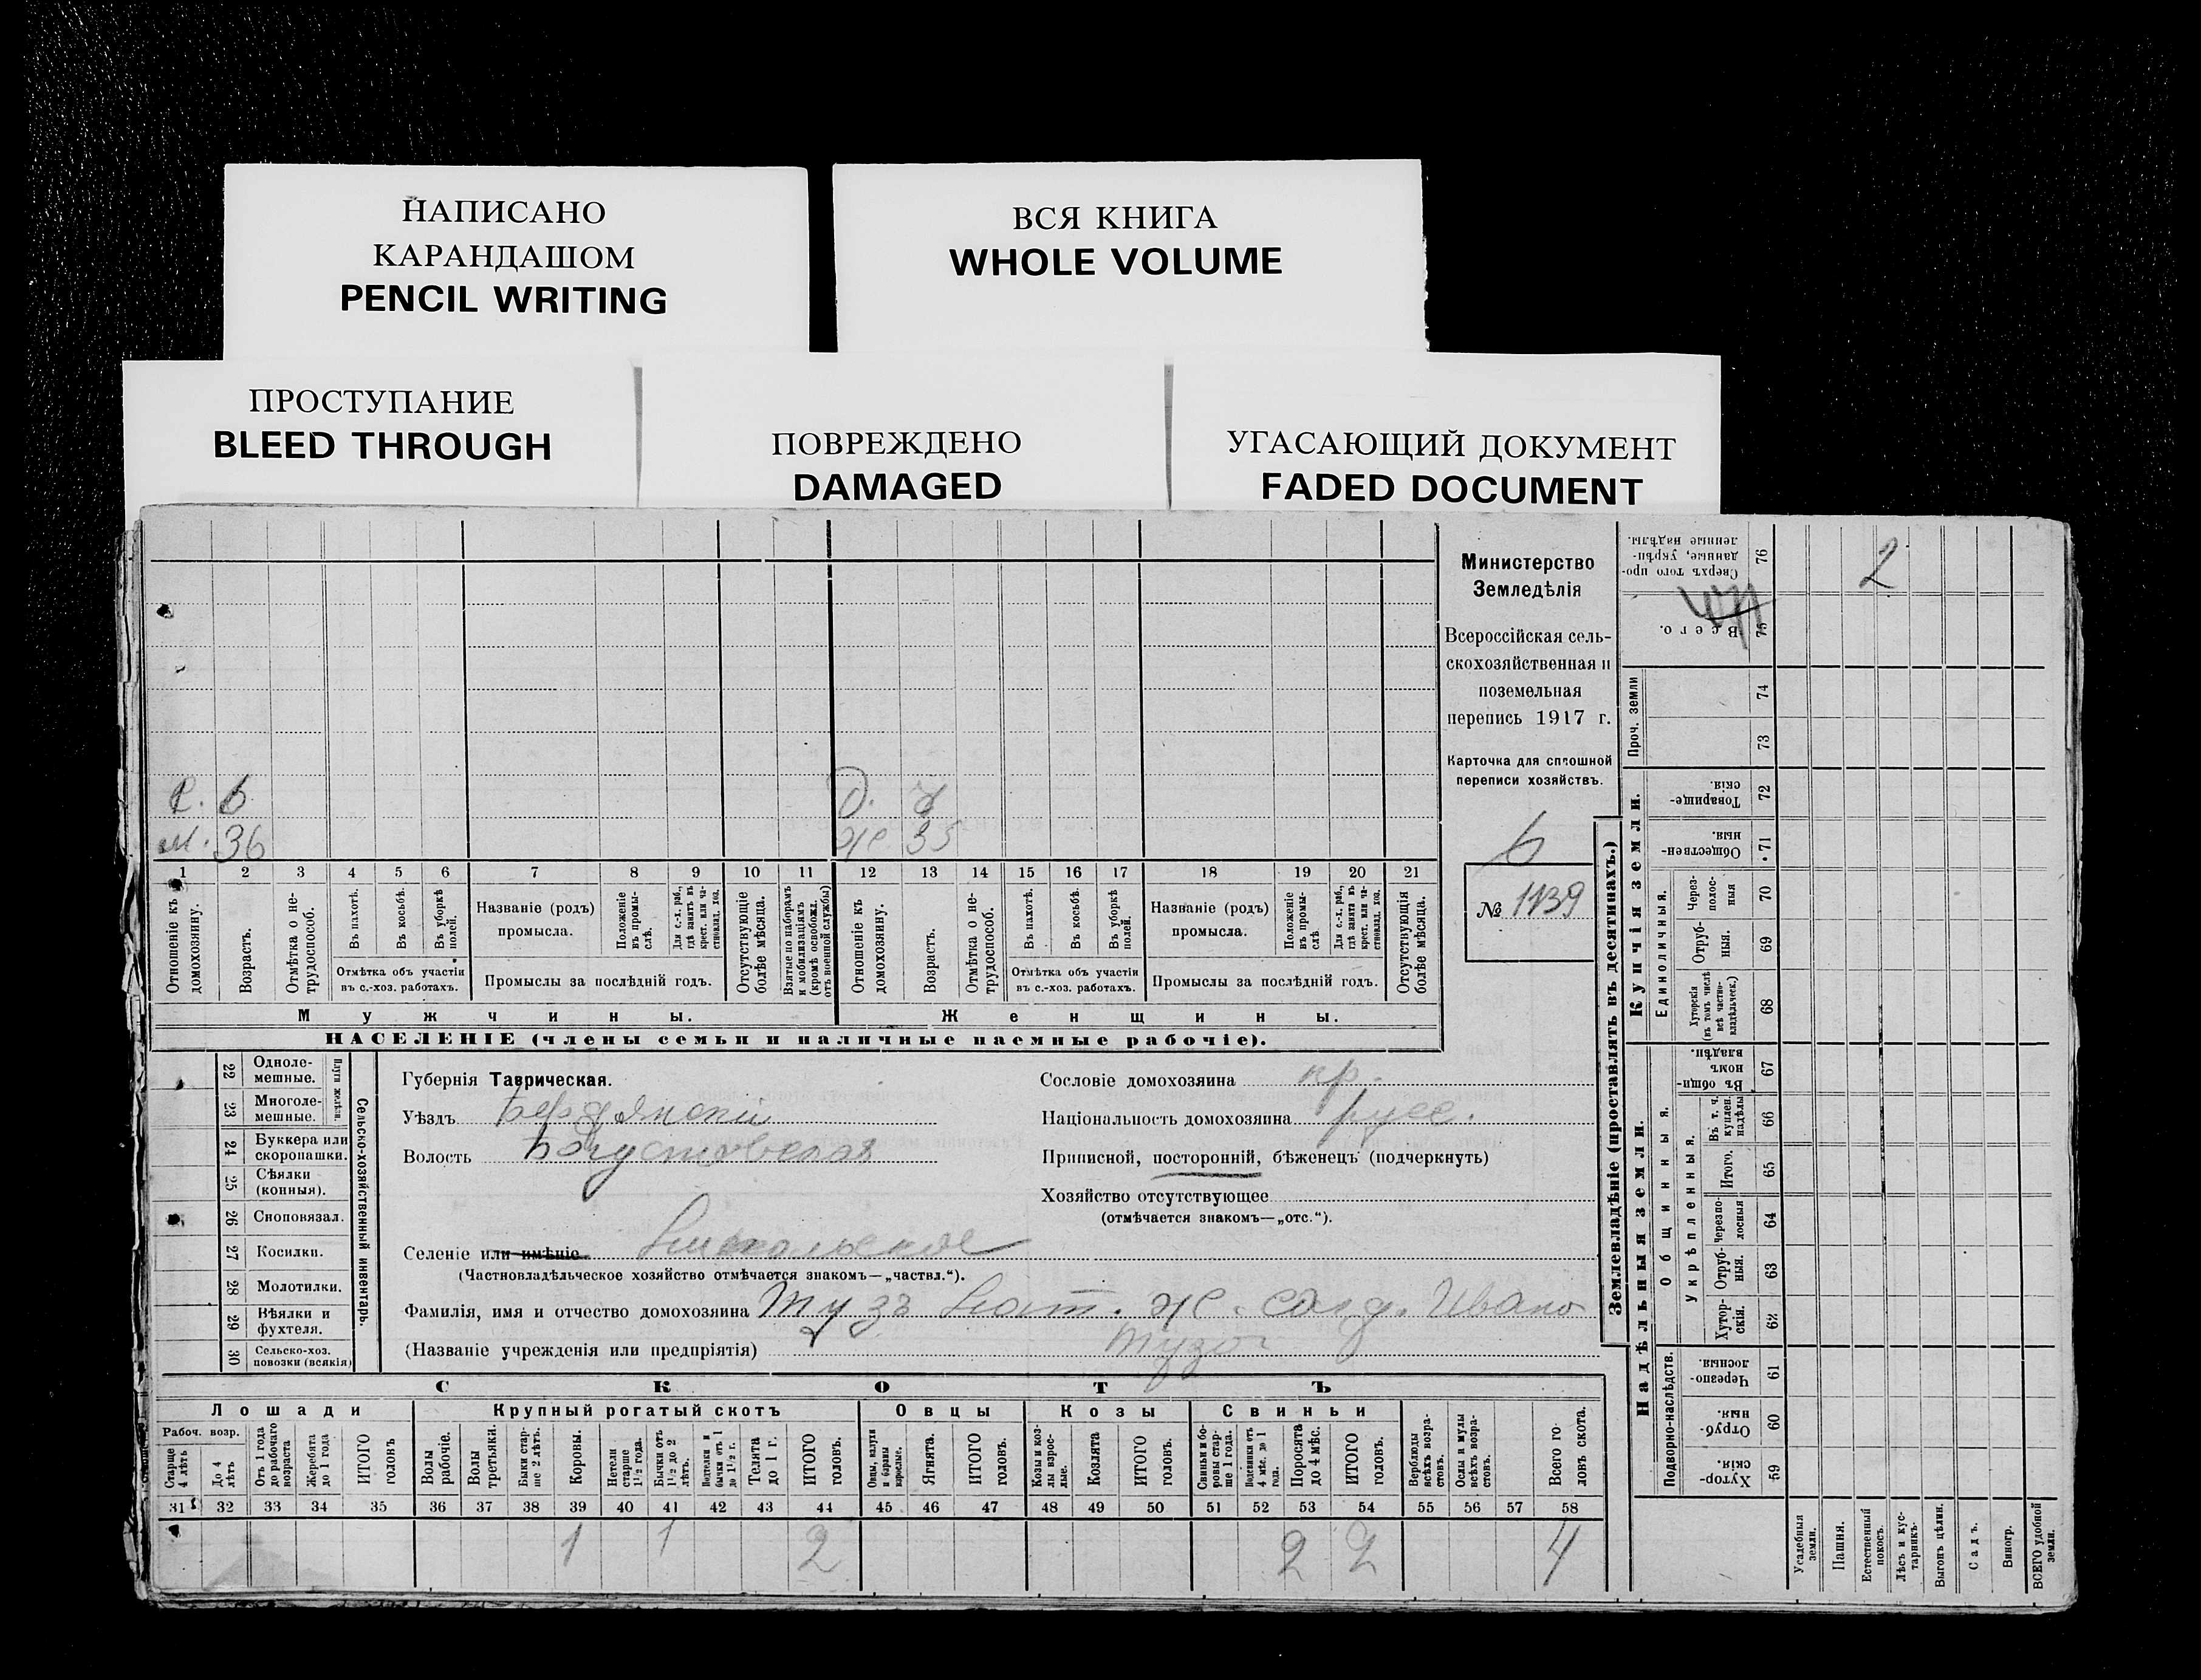 НАПИСАНО
КАРАНДАШОМ
PENCIL WRITING
ВСЯ КНИГА
WHOLE VOLUME
ПРОСТУПАНИЕ
BLEED THROUGH
ПОВРЕЖДЕНО
DAMAGED
УГАСАЮЩИЙ ДОКУМЕНТ
FADED DOCUMENT
Министерство
Земледѣлія
Всероссійская сель-
скохозяйственная и
поземельная
перепись 1917 г.
Карточка для сплошной
переписи хозяйствъ.
6
№ 1139
с. 6 д.
м. 36 же 35
1 2 3 4 5 6 7 8 9 10 11 12 13 14 15 16 17 18 19 20 21
Отношеніе къ домохозяину.
Возрастъ.
Отмѣтка о не-трудоспособ.
Въ пахотѣ.
Въ косьбѣ.
Въ уборкѣ полей.
Отмѣтка объ участіи
въ с.-хоз. работахъ.
Названіе (родъ)
промысла.
Положеніе въ промы-слѣ.
Для с.-х. раб., гдѣ занятъ въ крест. или ча-стновлад. хоз.
Промыслы за послѣдній годъ.
Отсутствующіе болѣе мѣсяца.
Взятые по наборамъ и мобилизаціямъ (кромѣ освобожд. отъ военной службы)
Отношеніе къ домохозяину.
Возрастъ.
Отмѣтка о не-трудоспособ.
Въ пахотѣ.
Въ косьбѣ.
Въ уборкѣ полей.
Отмѣтка объ участіи
въ с.-хоз. работахъ.
Названіе (родъ)
промысла.
Положеніе въ промы-слѣ
Для с.-х. раб., гдѣ занята въ крест. или ча-стновлад. хоз.
Промыслы за послѣдній годъ.
Отсутствующія болѣе мѣсяца.
Мужчины. Женщины.
НАСЕЛЕНІЕ (члены семьи и наличные наемные рабочіе).
22 Одноле-мешные.
23 Многоле-мешные.
Плуги желѣзн.
24 Буккера или скоропашки.
25 Сѣялки (конныя).
26 Сноповязал.
27 Косилки.
28 Молотилки.
29 Вѣялки и фухтеля.
30 Сельско-хоз. повозки (всякія)
Сельско-хозяйственный инвентарь.
Губернія Таврическая.
Уѣздъ Бердянскій
Волость
Сословіе домохозяина кр.
Національность домохозяина русс.
Приписной, посторонній, бѣженецъ (подчеркнуть)
Хозяйство отсутствующее
(отмѣчается знакомъ—„отс.“).
Селеніе или имѣніе
(Частновладѣльческое хозяйство отмѣчается знакомъ—„частвл.“).
Фамилія, имя и отчество домохозяина Тузъ же. солд. Ивано
(Названіе учрежденія или предпріятія)
СКОТЪ
Лошади Крупный рогатый скотъ Овцы Козы Свиньи
Рабоч. возр.
Старше 4 лѣтъ
До 4 лѣтъ
Отъ 1 года до рабочаго возраста
Жеребята до 1 года
ИТОГО головъ
Волы рабочіе.
Волы третьяки.
Быки стар-ше 2 лѣтъ.
Коровы.
Нетели старше 1½ года.
Бычки отъ 1½ до 2 лѣтъ.
Телята до 1 г.
ИТОГО головъ.
Ягнята.
ИТОГО головъ.
Козы и коз-лы взрос-лые.
Козлята
ИТОГО головъ.
Свиньи и бо-ровы стар-ше 1 года.
Подсвинки отъ 4 мѣс. до 1 года.
Поросята до 4 мѣс.
ИТОГО головъ.
Верблюды всѣхъ возра-стовъ.
Ослы и мулы всѣхъ возра-стовъ.
Всего го-ловъ скота.
31 32 33 34 35 36 37 38 39 40 41 42 43 44 45 46 47 48 49 50 51 52 53 54 55 56 57 58
1 1 2 2 2 4
Землевладѣніе (проставлять въ десятинахъ.)
Сверхъ того про-данные, укрѣп-ленные надѣлы. 76 2
Всего. 75
Проч. земли 74 73
Купчія земли.
Товарище-скія 72
Обществен-ныя. 71
Единоличныя.
Через-полос-ныя 70
Отруб-ныя. 69
Хуторскія (въ томъ числѣ всѣ частно-владѣльческ.) 68
Надѣльныя земли.
Общинныя.
Въ общин-номъ владѣн. 67
Укрѣпленныя.
Въ т. ч. куплен. надѣлы 66
Итого. 65
Черезпо-лосныя 64
Отруб-ныя. 63
Хутор-скія. 62
Подворно-наслѣдств.
Черезпо-лосныя 61
Отруб-ныя. 60
Хутор-скія. 59
Усадебныя земли.
Пашня.
Естественный покосъ.
Лѣсъ и кус-тарникъ.
Выгонъ цѣлин.
Садъ.
Виногр.
ВСЕГО удобной земли.